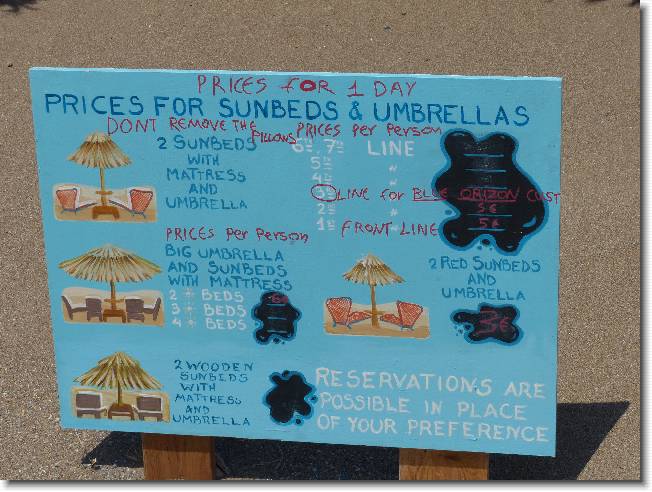 PRICES FOR 1 DAY
PRICES FOR SUNBEDS & UMBRELLAS
DONT REMOVE THE PILLOWS
2 SUNBEDS
WITH
MATTRESS
AND
UMBRELLA
PRICES Per Person
6η, 7η LINE
5η "
4η "
3η LINE for BLUE ORIZON CUST
2η " 5€
1η FRONT-LINE 5€
PRICES Per Person
BIG UMBRELLA
AND SUNBEDS
WITH MATTRESS
2 * BEDS 6€
3 * BEDS
4 * BEDS
2 RED SUNBEDS
AND
UMBRELLA
3€
2 WOODEN
SUNBEDS
WITH
MATTRESS
AND
UMBRELLA
RESERVATIONS ARE
POSSIBLE IN PLACE
OF YOUR PREFERENCE